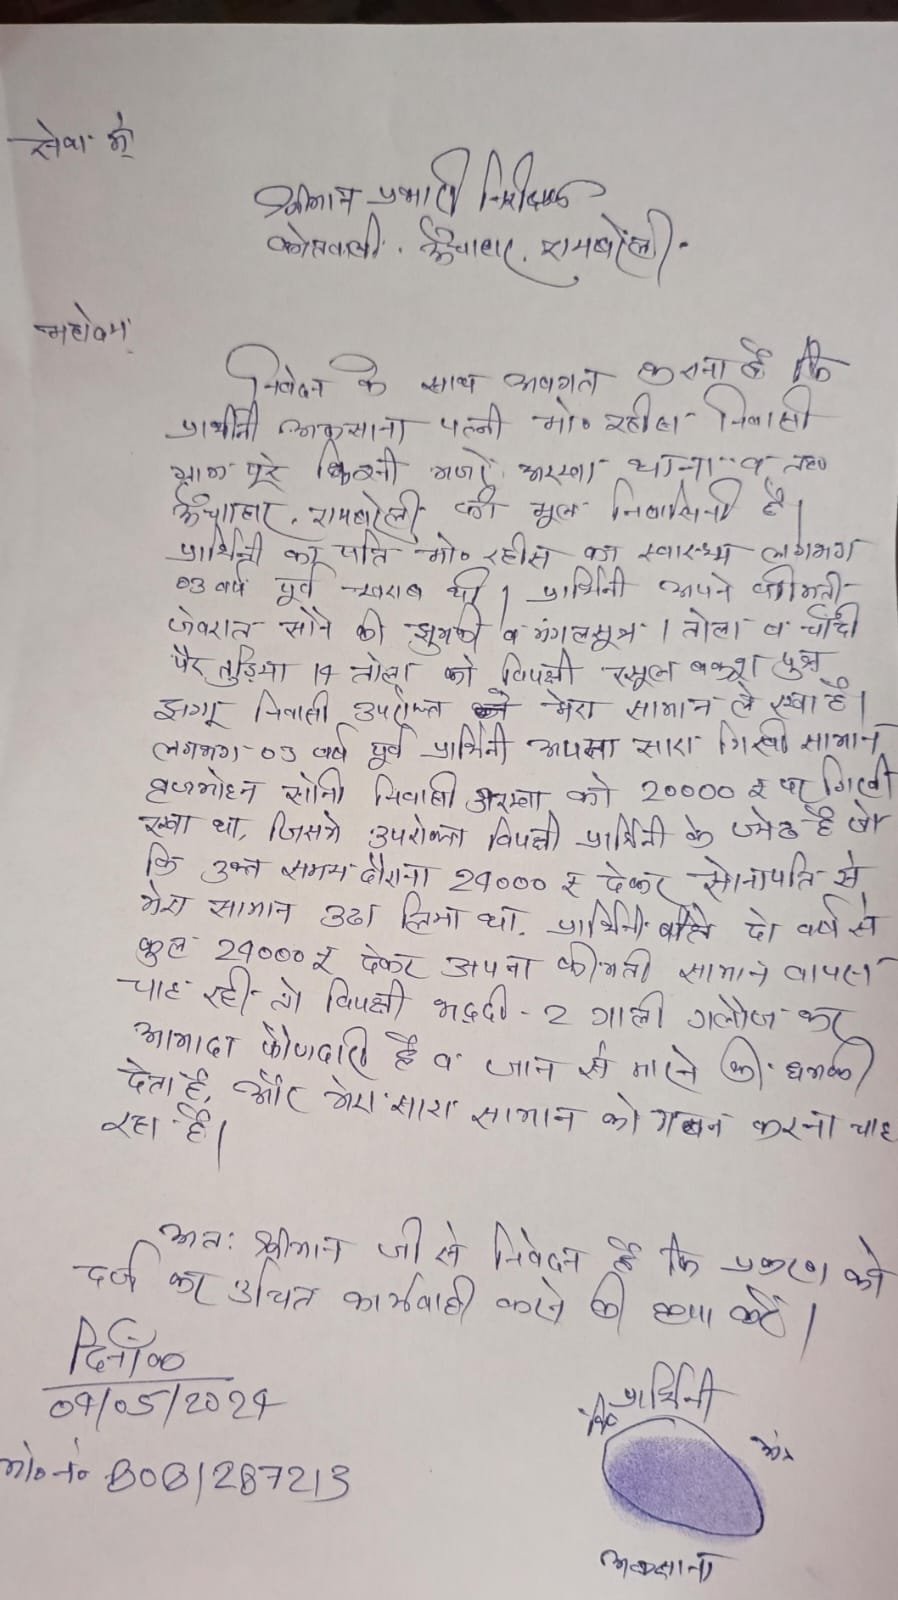 सेवा में
श्रीमान प्रभारी निरीक्षक
कोतवाली. ऊँचाहार, रायबरेली.
महोदय,
निवेदन के साथ अवगत कराना है कि
प्रार्थिनी अफसाना पत्नी मो० रहीस निवासी
ग्राम पूरे किसनी मजरे अरखा थाना व तह०
ऊँचाहार, रायबरेली की मूल निवासिनी है।
प्रार्थिनी का पति मो० रहीस का स्वास्थ्य लगभग
03 वर्ष पूर्व खराब थी। प्रार्थिनी अपने कीमती
जेवरात सोने की झुमकी व मंगलसूत्र 1 तोला व चाँदी
पैर तुड़िया 14 तोला को विपक्षी रसूल बकश पुत्र
झगरू निवासी उपरोक्त ने मेरा सामान ले रखा है।
लगभग 03 वर्ष पूर्व प्रार्थिनी अपना सारा गिरवी सामान
बृजमोहन सोनी निवासी अरखा को 20000 रु पर गिरवी
रखा था, जिसमे उपरोक्त विपक्षी प्रार्थिनी के जेठ है जो
कि उक्त समय दौरान 24000 रु देकर सोनापति से
मेरा सामान उठा लिया था. प्रार्थिनी बीते दो वर्ष से
कुल 24000 रु देकर अपना कीमती सामान वापस
चाह रही तो विपक्षी भद्दी-2 गाली गलौज कर
आमादा फौजदारी है व जान से मारने की धमकी
देता है, और मेरा सारा सामान को गबन करना चाह
रहा है।
अतः श्रीमान जी से निवेदन है कि प्रकरण को
दर्ज कर उचित कार्यवाही करने की कृपा करें।
दिनाँक
04/05/2024
प्रार्थिनी
मो० नं० 8081287213
अफसाना